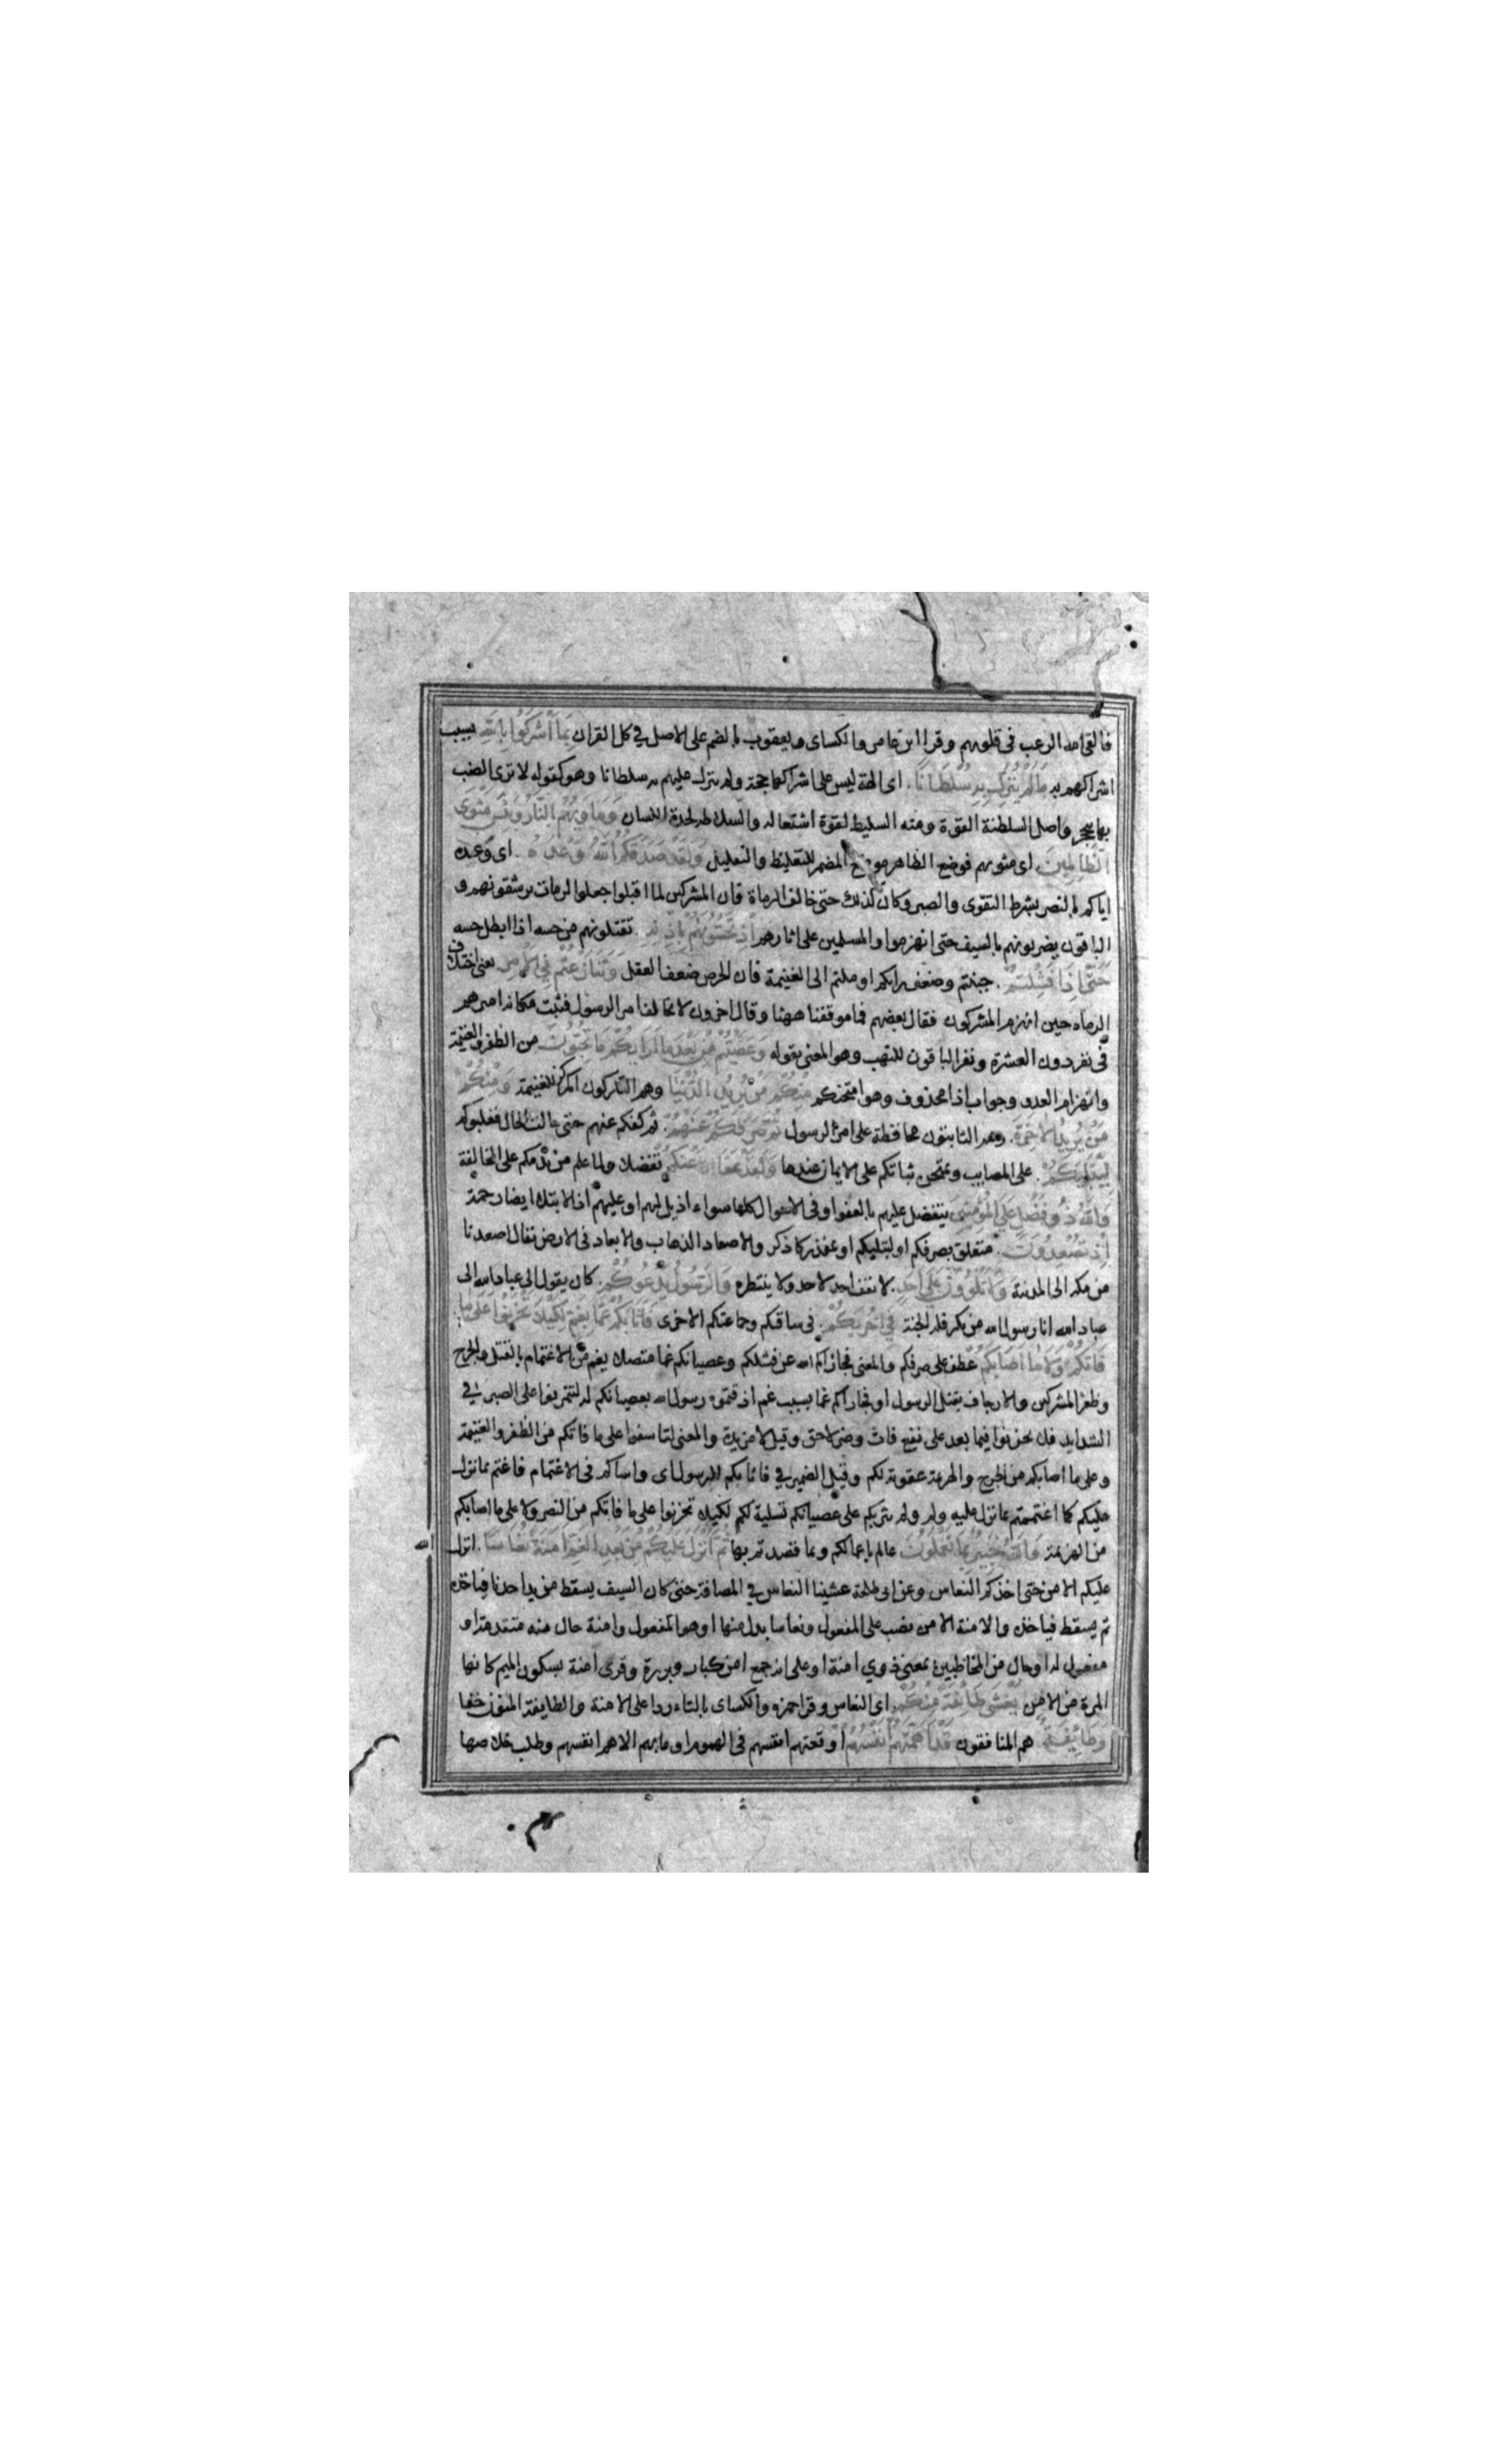 فالقى الله الرعب فى قلوبهم وقرا ابن عامر والكساى ويعقوب بالضم على الاصل في كل القران بِمَا أَشْرَكُوا بِاللهِ بسبب
اشراكهم به مَا لَمْ يُنَزِّلْ بِهِ سُلْطَانًا. اى الهة ليس على اشراكها حجة ولم ينزل عليهم به سلطانا وهو كقوله لا ترى الضب
بها ينحجر واصل السلطنة القوة ومنه السليط لقوة اشتعاله والسلاطة لحدة اللسان وَمَأْوَيهُمُ النَّارُ وَبِئْسَ مَثْوَى
الظَّالِمِينَ اى مثويهم فوضع الظاهر موضع المضمر للتغليظ والتعليل وَلَقَدْ صَدَقَكُمُ اللهُ وَعْدَهُ. اى وعده
اياكم بالنصر بشرط التقوى والصبر وكان كذلك حتى خالف الرماة فان المشركين لما اقبلوا جعلوا الرمات يرشقونهم و
الباقون يضربونهم بالسيف حتى انهزموا والمسلمين على اثارهم إِذْ تَحُسُّونَهُمْ بِإِذْنِهِ. تقتلونهم من حسه اذا ابطل حسه
حَتَّى إِذَا فَشِلْتُمْ. جبنتم وضعف رايكم او ملتم الى الغنيمة فان الحرص ضعف العقل وَتَنَازَعْتُمْ فِي الْأَمْرِ يعنى اختلاف
الرماه حين انهزم المشركون فقال بعضهم فما موقفنا ههنا وقال اخرون لا نخالف امر الرسول فثبت مكانه اميرهم
فى نفر دون العشرة ونفر الباقون للنهب وهو المعنى بقوله وَعَصَيْتُمْ مِنْ بَعْدِ مَا أَرَاكُمْ مَا تُحِبُّونَ من الظفر والغنيمة
وانهزام العدو وجواب اذا محذوف وهو امتحنكم مِنْكُمْ مَنْ يُرِيدُ الدُّنْيَا وهم التاركون المركز للغنيمة وَمِنْكُمْ
مَنْ يُرِيدُ الْآخِرَةَ. وهم الثابتون محافظة على امر الرسول ثُمَّ صَرَفَكُمْ عَنْهُمْ. ثم كفكم عنهم حتى حالت الحال فغلبوكم
لِيَبْتَلِيَكُمْ. على المصايب ويمتحن ثباتكم على الايمان عندها وَلَقَدْ عَفَا عَنْكُمْ تفضلا ولما علم من ندمكم على المخالفة
وَاللهُ ذُو فَضْلٍ عَلَى الْمُؤْمِنِينَ يتفضل عليهم بالعفو او فى الاحوال كلها سواء اذيل لهم او عليهم اذ الابتلا ايضا رحمة
إِذْ تُصْعِدُونَ. متعلق بصرفكم او ليبتليكم او بمقدر كاذكر والاصعاد الذهاب والابعاد فى الارض يقال اصعدنا
من مكه الى المدينة وَلَا تَلْوُونَ عَلَى أَحَدٍ. لا يقف احد لاحد ولا ينتظره وَالرَّسُولُ يَدْعُوكُمْ. كان يقول الى عباد الله الى
عباد الله انا رسول الله من يكر فله الجنة فِي أُخْرَيكُمْ. فى ساقتكم وجماعتكم الاخرى فَأَثَابَكُمْ غَمًّا بِغَمٍّ لِكَيْلَا تَحْزَنُوا عَلَى مَا
فَاتَكُمْ وَلَا مَا أَصَابَكُمْ عطف على صرفكم والمعنى فجازاكم الله عن فشلكم وعصيانكم غما متصلا بغم من الاغتمام بالقتل والجرح
وظفر المشركين والارجاف بقتل الرسول او فجازاكم غما بسبب غم اذقتموه رسول الله بعصيانكم له لتتمرنوا على الصبر في
الشدايد فلا تحزنوا فيما بعد على نفع فات وضر لاحق وقيل لا مزيدة والمعنى لتاسفوا على ما فاتكم من الظفر والغنيمة
وعلى ما اصابكم من الجرح والهزيمة عقوبة لكم وقيل الضمير في فاثابكم للرسول اى واساكم فى الاغتمام فاغتم بما نزل
عليكم كما اغتممتم بما نزل عليه ولم ولم يثربكم على عصيانكم تسلية لكم لكيلا تحزنوا على ما فاتكم من النصر ولا على ما اصابكم
من الهزيمة وَاللهُ خَبِيرٌ بِمَا تَعْمَلُونَ عالم باعمالكم وبما قصدتم بها ثُمَّ أَنْزَلَ عَلَيْكُمْ مِنْ بَعْدِ الْغَمِّ أَمَنَةً نُعَاسًا. انزل
الله
عليكم الامن حتى اخذكم النعاس وعن ابى طلحة غشينا النعاس في المصاف حتى كان السيف يسقط من يد احدنا فياخذه
ثم يسقط فياخذه والامنة الامن نصب على المفعول ونعاسا بدل منها او هو المفعول وامنة حال منه متقدمة او
مفعول له او حال من المخاطبين بمعنى ذوي امنة او على انه جمع امن كبار وبررة وقرى امنة بسكون الميم كانها
المرة من الامن يَغْشَى طَائِفَةً مِنْكُمْ. اى النعاس وقرا حمزه والكساى بالتاء ردا على الامنة والطايفة المؤمنون حقا
وَطَائِفَةٌ. هم المنافقون قَدْ أَهَمَّتْهُمْ أَنْفُسُهُمْ اوقعتهم انفسهم فى الهموم او ما بهم الا هم انفسهم وطلب خلاصها